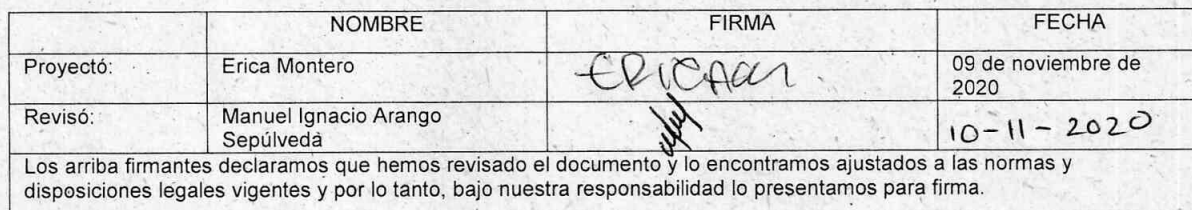 NOMBRE FIRMA FECHA
Proyectó: Erica Montero 09 de noviembre de
2020
Revisó: Manuel Ignacio Arango 10-11-2020
Sepúlveda
Los arriba firmantes declaramos que hemos revisado el documento y lo encontramos ajustados a las normas y
disposiciones legales vigentes y por lo tanto, bajo nuestra responsabilidad lo presentamos para firma.